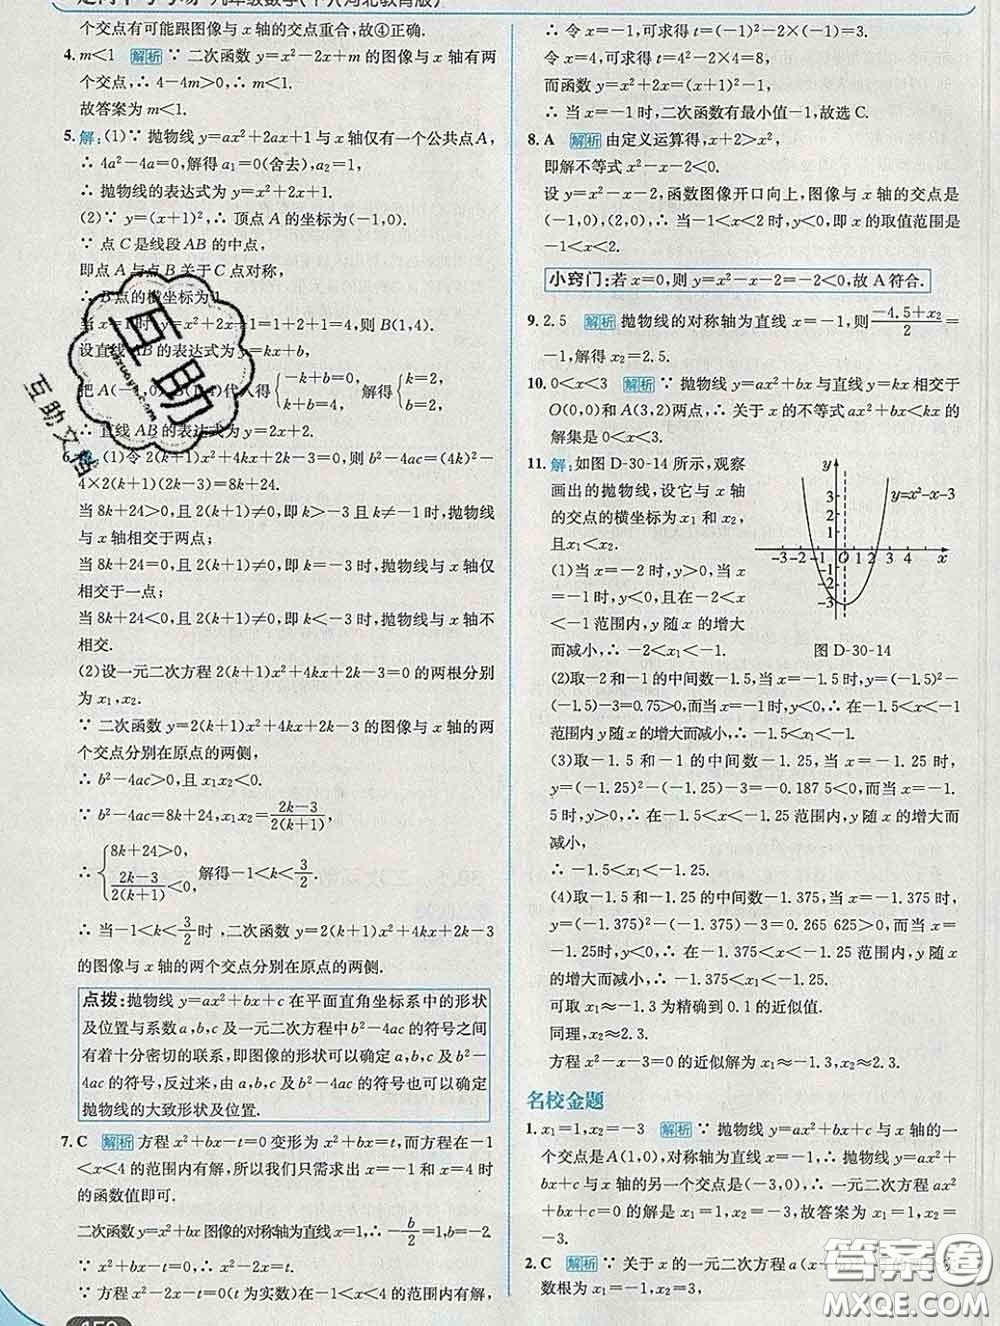 个交点有可能跟图像与x轴的交点重合,故④正确.
4. m<1 解析 ∵ 二次函数 y=x²-2x+m 的图像与 x 轴有两
个交点,∴ 4-4m>0,解得 m<1.
故答案为 m<1.
5. 解:(1)∵ 抛物线 y=ax²+2ax+1 与 x 轴仅有一个公共点 A,
∴ 4a²-4a=0,解得 a₁=0(舍去),a₂=1,
∴ 抛物线的表达式为 y=x²+2x+1.
(2)∵ y=(x+1)²,∴ 顶点 A 的坐标为(-1,0).
∵ 点 C 是线段 AB 的中点,
即点 A 与点 B 关于 C 点对称,
∴ B 点的横坐标为 1
当 x=1 时,y=x²+2x+1=1+2+1=4,则 B(1,4).
设直线 AB 的表达式为 y=kx+b,
把 A(-1,0),B(1,4)代入得 {-k+b=0, k+b=4, 解得 {k=2, b=2,
∴ 直线 AB 的表达式为 y=2x+2.
6. (1)令 2(k+1)x²+4kx+2k-3=0,则 b²-4ac=(4k)²-
4×2(k+1)(2k-3)=8k+24.
当 8k+24>0,且 2(k+1)≠0,即 k>-3 且 k≠-1 时,抛物线
与 x 轴相交于两点;
当 8k+24=0,且 2(k+1)≠0,即 k=-3 时,抛物线与 x 轴仅
相交于一点;
当 8k+24<0,且 2(k+1)≠0,即 k<-3 时,抛物线与 x 轴不
相交.
(2)设一元二次方程 2(k+1)x²+4kx+2k-3=0 的两根分别
为 x₁,x₂.
∵ 二次函数 y=2(k+1)x²+4kx+2k-3 的图像与 x 轴的两
个交点分别在原点的两侧,
∴ b²-4ac>0,且 x₁x₂<0.
∵ b²-4ac=8k+24,x₁x₂=(2k-3)/(2(k+1)),
∴ {8k+24>0, (2k-3)/(2(k+1))<0, 解得-1<k<3/2.
∴ 当-1<k<3/2时,二次函数 y=2(k+1)x²+4kx+2k-3
的图像与 x 轴的两个交点分别在原点的两侧.
点拨:抛物线 y=ax²+bx+c 在平面直角坐标系中的形状
及位置与系数 a,b,c 及一元二次方程中 b²-4ac 的符号之间
有着十分密切的联系,即图像的形状可以确定 a,b,c 及 b²-
4ac 的符号,反过来,由 a,b,c 及 b²-4ac 的符号也可以确定
抛物线的大致形状及位置.
7. C 解析 方程 x²+bx-t=0 变形为 x²+bx=t,而方程在-1
<x<4 的范围内有解,所以我们只需求出 x=-1 和 x=4 时
的函数值即可.
二次函数 y=x²+bx 图像的对称轴为直线 x=1,∴ -b/2=1,b=-2.
∵ x²+bx-t=0,∴ x²-2x=t.
∵ 方程 x²-2x-t=0(t 为实数)在-1<x<4 的范围内有解,
∴ 令 x=-1,可求得 t=(-1)²-2×(-1)=3.
令 x=4,可求得 t=4²-2×4=8,
而函数 y=x²-2x=(x-1)²-1,
∴ 当 x=-1时,二次函数有最小值-1,故选 C.
8. A 解析 由定义运算得,x+2>x²,
即解不等式 x²-x-2<0.
设 y=x²-x-2,函数图像开口向上,图像与 x 轴的交点是
(-1,0),(2,0),∴ 当-1<x<2 时,y<0,即 x 的取值范围是
-1<x<2.
小窍门:若 x=0,则 y=x²-x-2=-2<0,故 A 符合.
9. 2.5 解析 抛物线的对称轴为直线 x=-1,则(-4.5+x₂)/2
=-1,解得 x₂=2.5.
10. 0<x<3 解析 ∵ 抛物线 y=ax²+bx 与直线 y=kx 相交于
O(0,0)和 A(3,2)两点,∴ 关于 x 的不等式 ax²+bx<kx 的
解集是 0<x<3.
11. 解:如图 D-30-14 所示,观察
画出的抛物线,设它与 x 轴
的交点的横坐标为 x₁ 和 x₂,
且 x₁<x₂.
(1)当 x=-2 时,y>0,当 x
=-1 时,y<0,且在-2<x
<-1 范围内,y 随 x 的增大
而减小,∴ -2<x₁<-1.
y
3
2
1
y=x²-x-3
-3 -2 -1 O 1 2 3 4 x
-3
图 D-30-14
(2)取-2 和-1 的中间数-1.5,当 x=-1.5 时,y=(-1.5)²-
(-1.5)-3=0.75>0,而当 x=-1 时,y<0,∴ 在-1.5<x<-1
范围内 y 随 x 的增大而减小,∴ -1.5<x₁<-1.
(3)取-1.5 和-1 的中间数-1.25,当 x=-1.25 时,
y=(-1.25)²-(-1.25)-3=-0.187 5<0,而当 x=-1.
5时,y>0,∴ 在-1.5<x<-1.25 范围内,y 随 x 的增大而
减小,
∴ -1.5<x₁<-1.25.
(4)取-1.5 和-1.25 的中间数-1.375,当 x=-1.375时,
y=(-1.375)²-(-1.375)-3=0.265 625>0,而当 x=
-1.25 时,y<0,∴ 在-1.375<x<-1.25 范围内 y 随 x 的
增大而减小,∴ -1.375<x₁<-1.25.
可取 x₁≈-1.3 为精确到 0.1 的近似值.
同理,x₂≈2.3.
方程 x²-x-3=0 的近似解为 x₁≈-1.3,x₂≈2.3.
名校金题
1. x₁=1,x₂=-3 解析 ∵ 抛物线 y=ax²+bx+c 与 x 轴的一
个交点是 A(1,0),对称轴为直线 x=-1,∴ 抛物线 y=ax²+
bx+c 与 x 轴的另一个交点是(-3,0),∴ 一元二次方程 ax²
+bx+c=0 的解是 x₁=1,x₂=-3,故答案为 x₁=1,x₂=
-3.
2. C 解析 ∵ 关于 x 的一元二次方程 a(x
数根为 x₁=-1,x₂=3,
互助
互助文档
答案圈
MXQE.COM